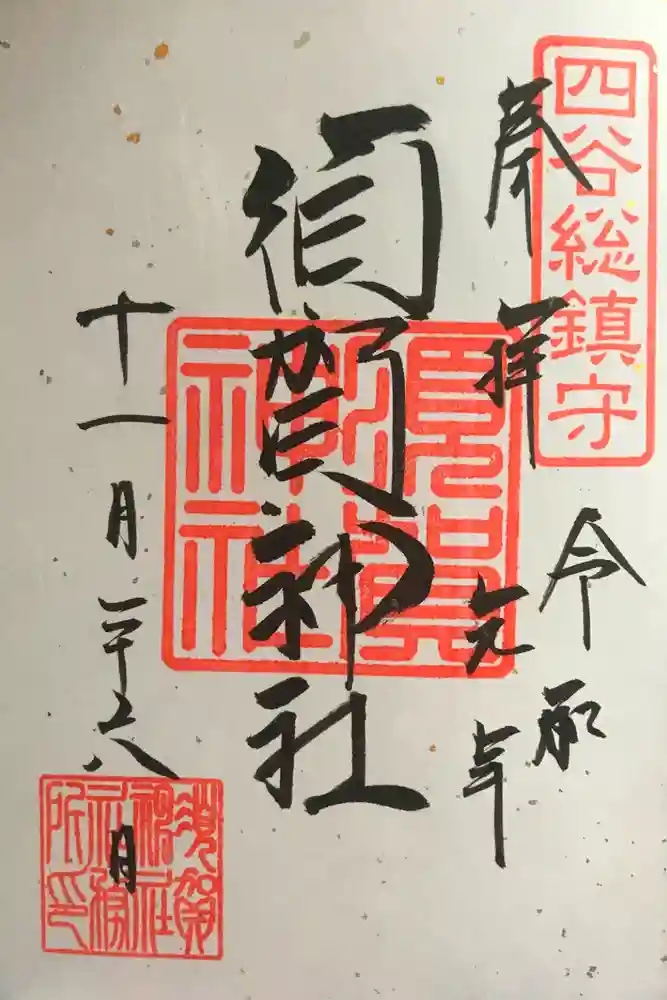 四谷総鎮守
奉拝
令和
元年
須賀神社
須賀神社
十一月二十六日
須賀神社社務所印